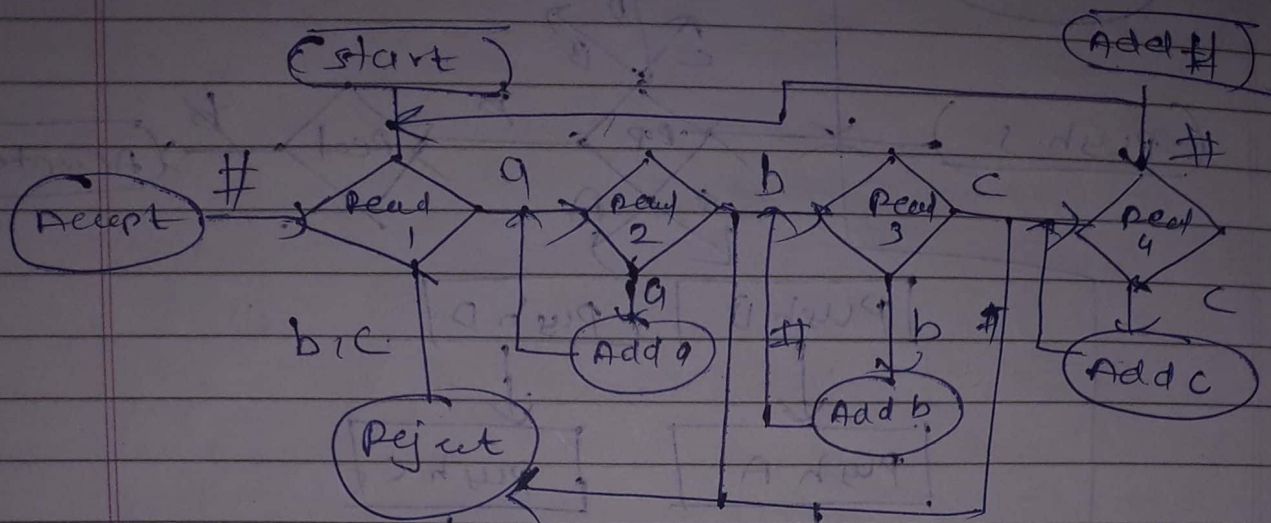 Start
Add #
# a b c #
Accept
Read 1
Read 2
Read 3
Read 4
a
b, c
# b # c
Add a
Add b
Add c
Reject